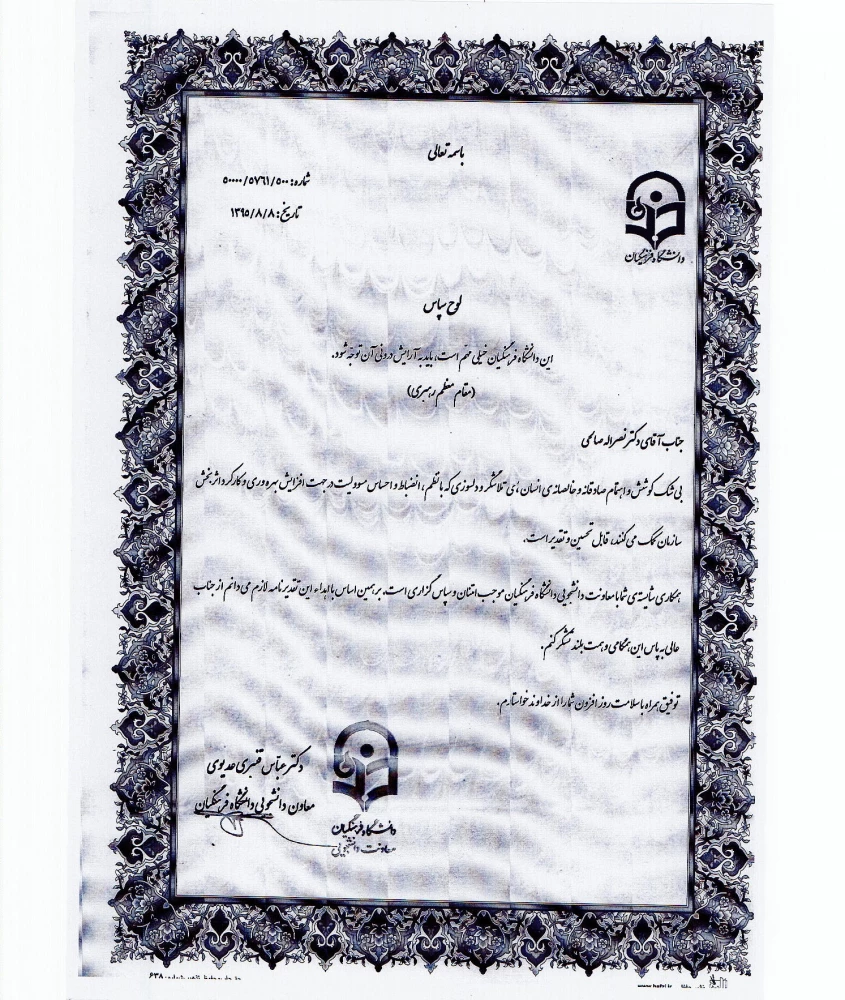 باسمه تعالی
شماره: ۵۰۰۰۰/۵۷۶۱/۵۰۰
تاریخ: ۱۳۹۵/۸/۸
دانشگاه فرهنگیان
لوح سپاس
این دانشگاه فرهنگیان خیلی مهم است، باید به آرایش درونی آن توجّه شود.
(مقام معظم رهبری)
جناب آقای دکتر نصراله صالحی
بی شک کوشش و اهتمام صادقانه و خالصانه ی انسان های تلاشگر و دلسوزی که با نظم، انضباط و احساس مسوولیت در جهت افزایش بهره وری و کارکرد اثربخش
سازمان کمک می کنند، قابل تحسین و تقدیر است.
همکاری شایسته ی شما با معاونت دانشجویی دانشگاه فرهنگیان موجب امتنان و سپاس گزاری است. بر همین اساس با اهداء این تقدیرنامه لازم می دانم از جناب
عالی به پاس این همگامی و همت بلند تشکر کنم.
توفیق همراه با سلامت روز افزون شما را از خداوند خواستارم.
دکتر عباس قنبری عدیوی
معاون دانشجویی دانشگاه فرهنگیان
دانشگاه فرهنگیان
معاونت دانشجویی